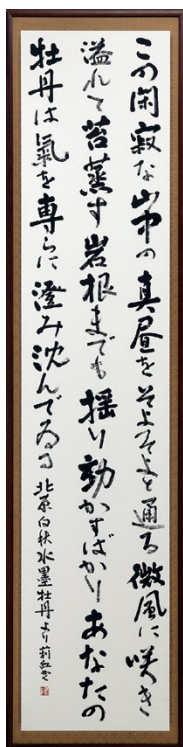 この閑寂な山中の真昼をそよそよと通る微風に咲き
溢れて苔蒸す岩根までも揺り動かすばかりあなたの
牡丹は氣を専らに澄み沈んでゐる 北原白秋水墨牡丹より